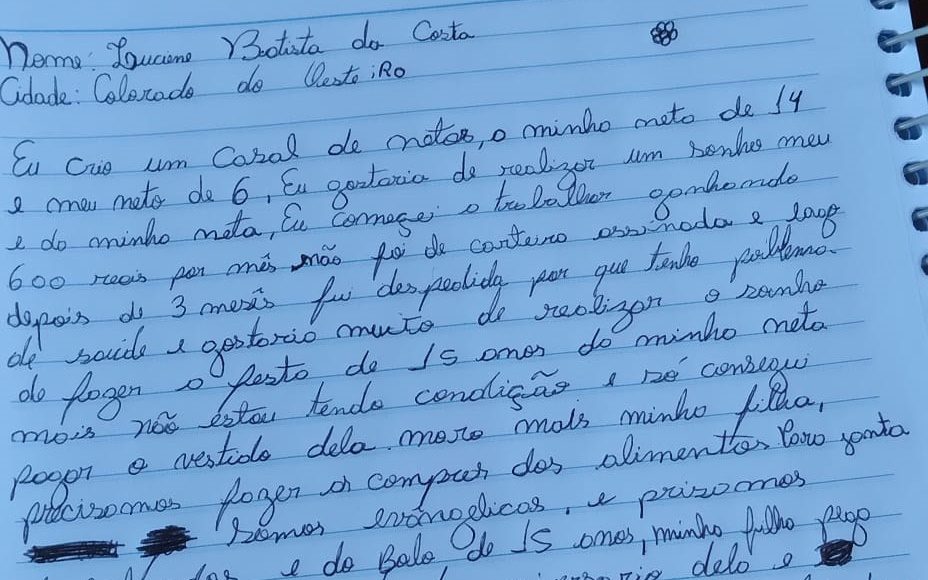 Nome: Luciene Batista da Costa
Cidade: Colorado do Oeste:RO
Eu crio um casal de netos, a minha neta de 14
e meu neto de 6, Eu gostaria de realizar um sonho meu
e da minha neta, Eu começei a trabalhar ganhando
600 reais por mês não foi de carteira assinada e logo
depois de 3 mesês fui despedida por que tenho poblema
de saúde e gostaria muito de realizar o sonho
de fazer a festa de 15 anos da minha neta
mais não estou tendo condição e só consegui
pagar o vestido dela. moro mais minha filha,
precisamos fazer as compras dos alimentos Para janta
somos evângelicos, e prizamos
e do Bolo de 15 anos, minha filha
dela e